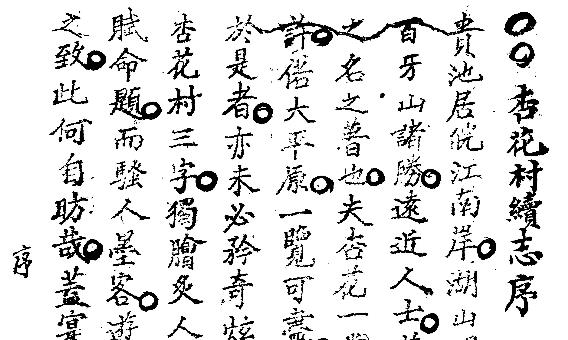 杏花村續志序
貴池居皖江南岸湖山
百牙山諸勝遠近人士
之名之著也夫杏花一
許俗大平原一覽可盡
於是者亦未必矜奇炫
杏花村三字獨膾炙人
賦命題而騷人墨客遊
之致此何自昉哉蓋宴
序